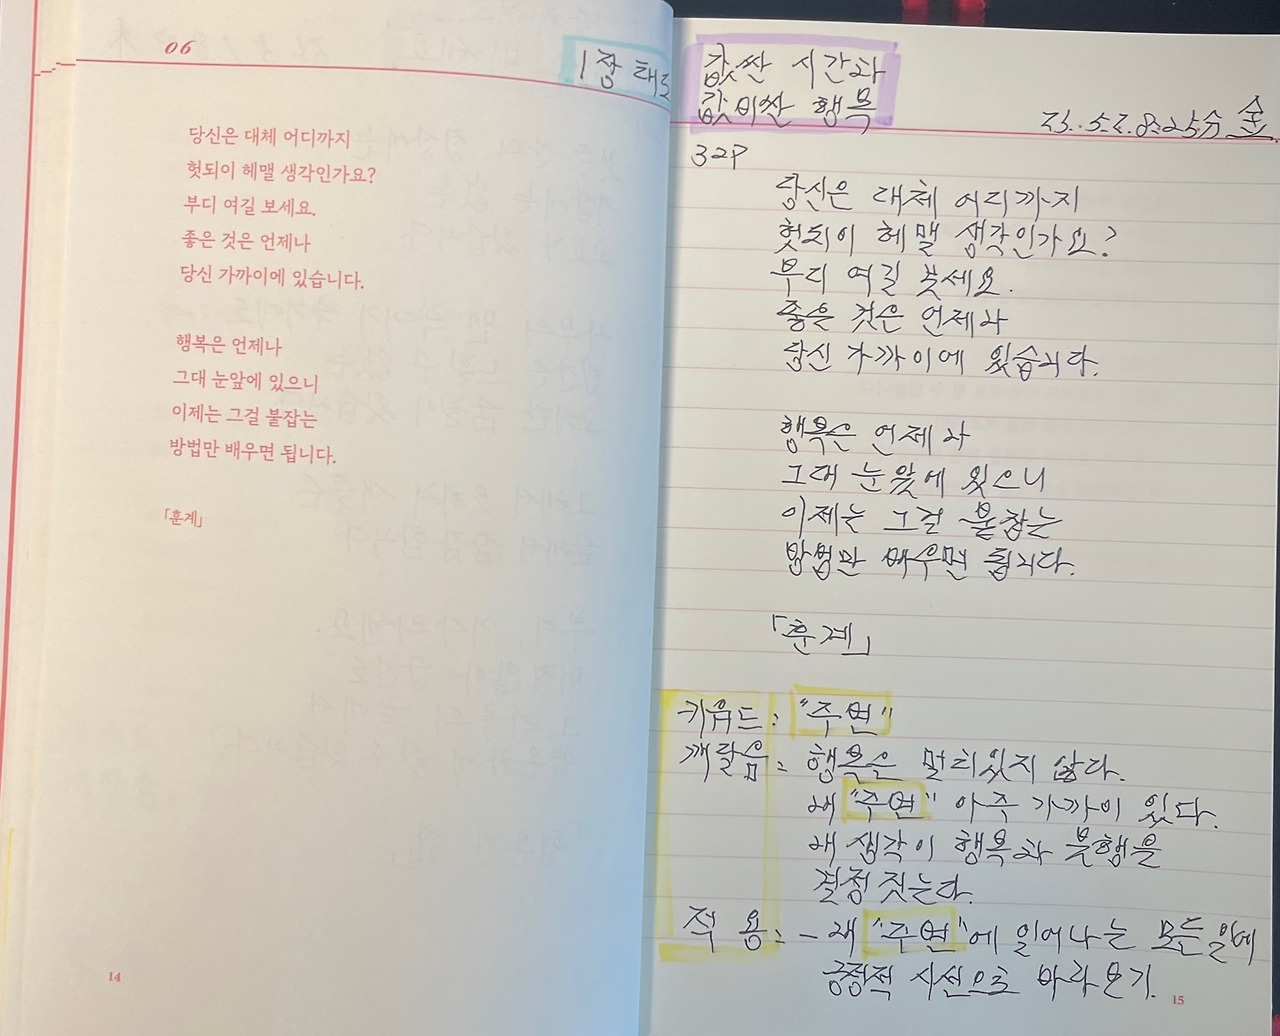 06
1장 태도
당신은 대체 어디까지
헛되이 헤맬 생각인가요?
부디 여길 보세요.
좋은 것은 언제나
당신 가까이에 있습니다.
행복은 언제나
그대 눈앞에 있으니
이제는 그걸 붙잡는
방법만 배우면 됩니다.
「훈계」
14
값싼 시간과
값비싼 행복
23. 5.2. 8:25分 金.
32P
당신은 대체 어디까지
헛되이 헤맬 생각인가요?
부디 여길 봇세요.
좋은 것은 언제나
당신 가까이에 있습니다.
행복은 언제나
그대 눈앞에 있으니
이제는 그걸 붙잡는
방법만 배우면 됩니다.
「훈계」
키워드: "주변"
깨달음: 행복은 멀리있지 않다.
내 "주변" 아주 가까이 있다.
내 생각이 행복과 불행을
결정 짓는다.
적 용: - 내 "주변"에 일어나는 모든 일에
긍정적 시선으로 바라보기.
15